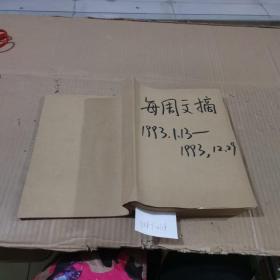 每周文摘
1993.1.13—
1993,12.29